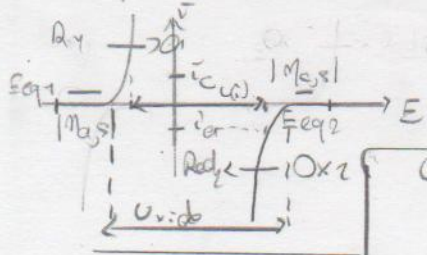 i
Red1 → Ox1
ic
u(i)
|ηa,s|
Eeq1
E
|ηa,s|
ia
Eeq2
Red2 ← Ox2
Uvide